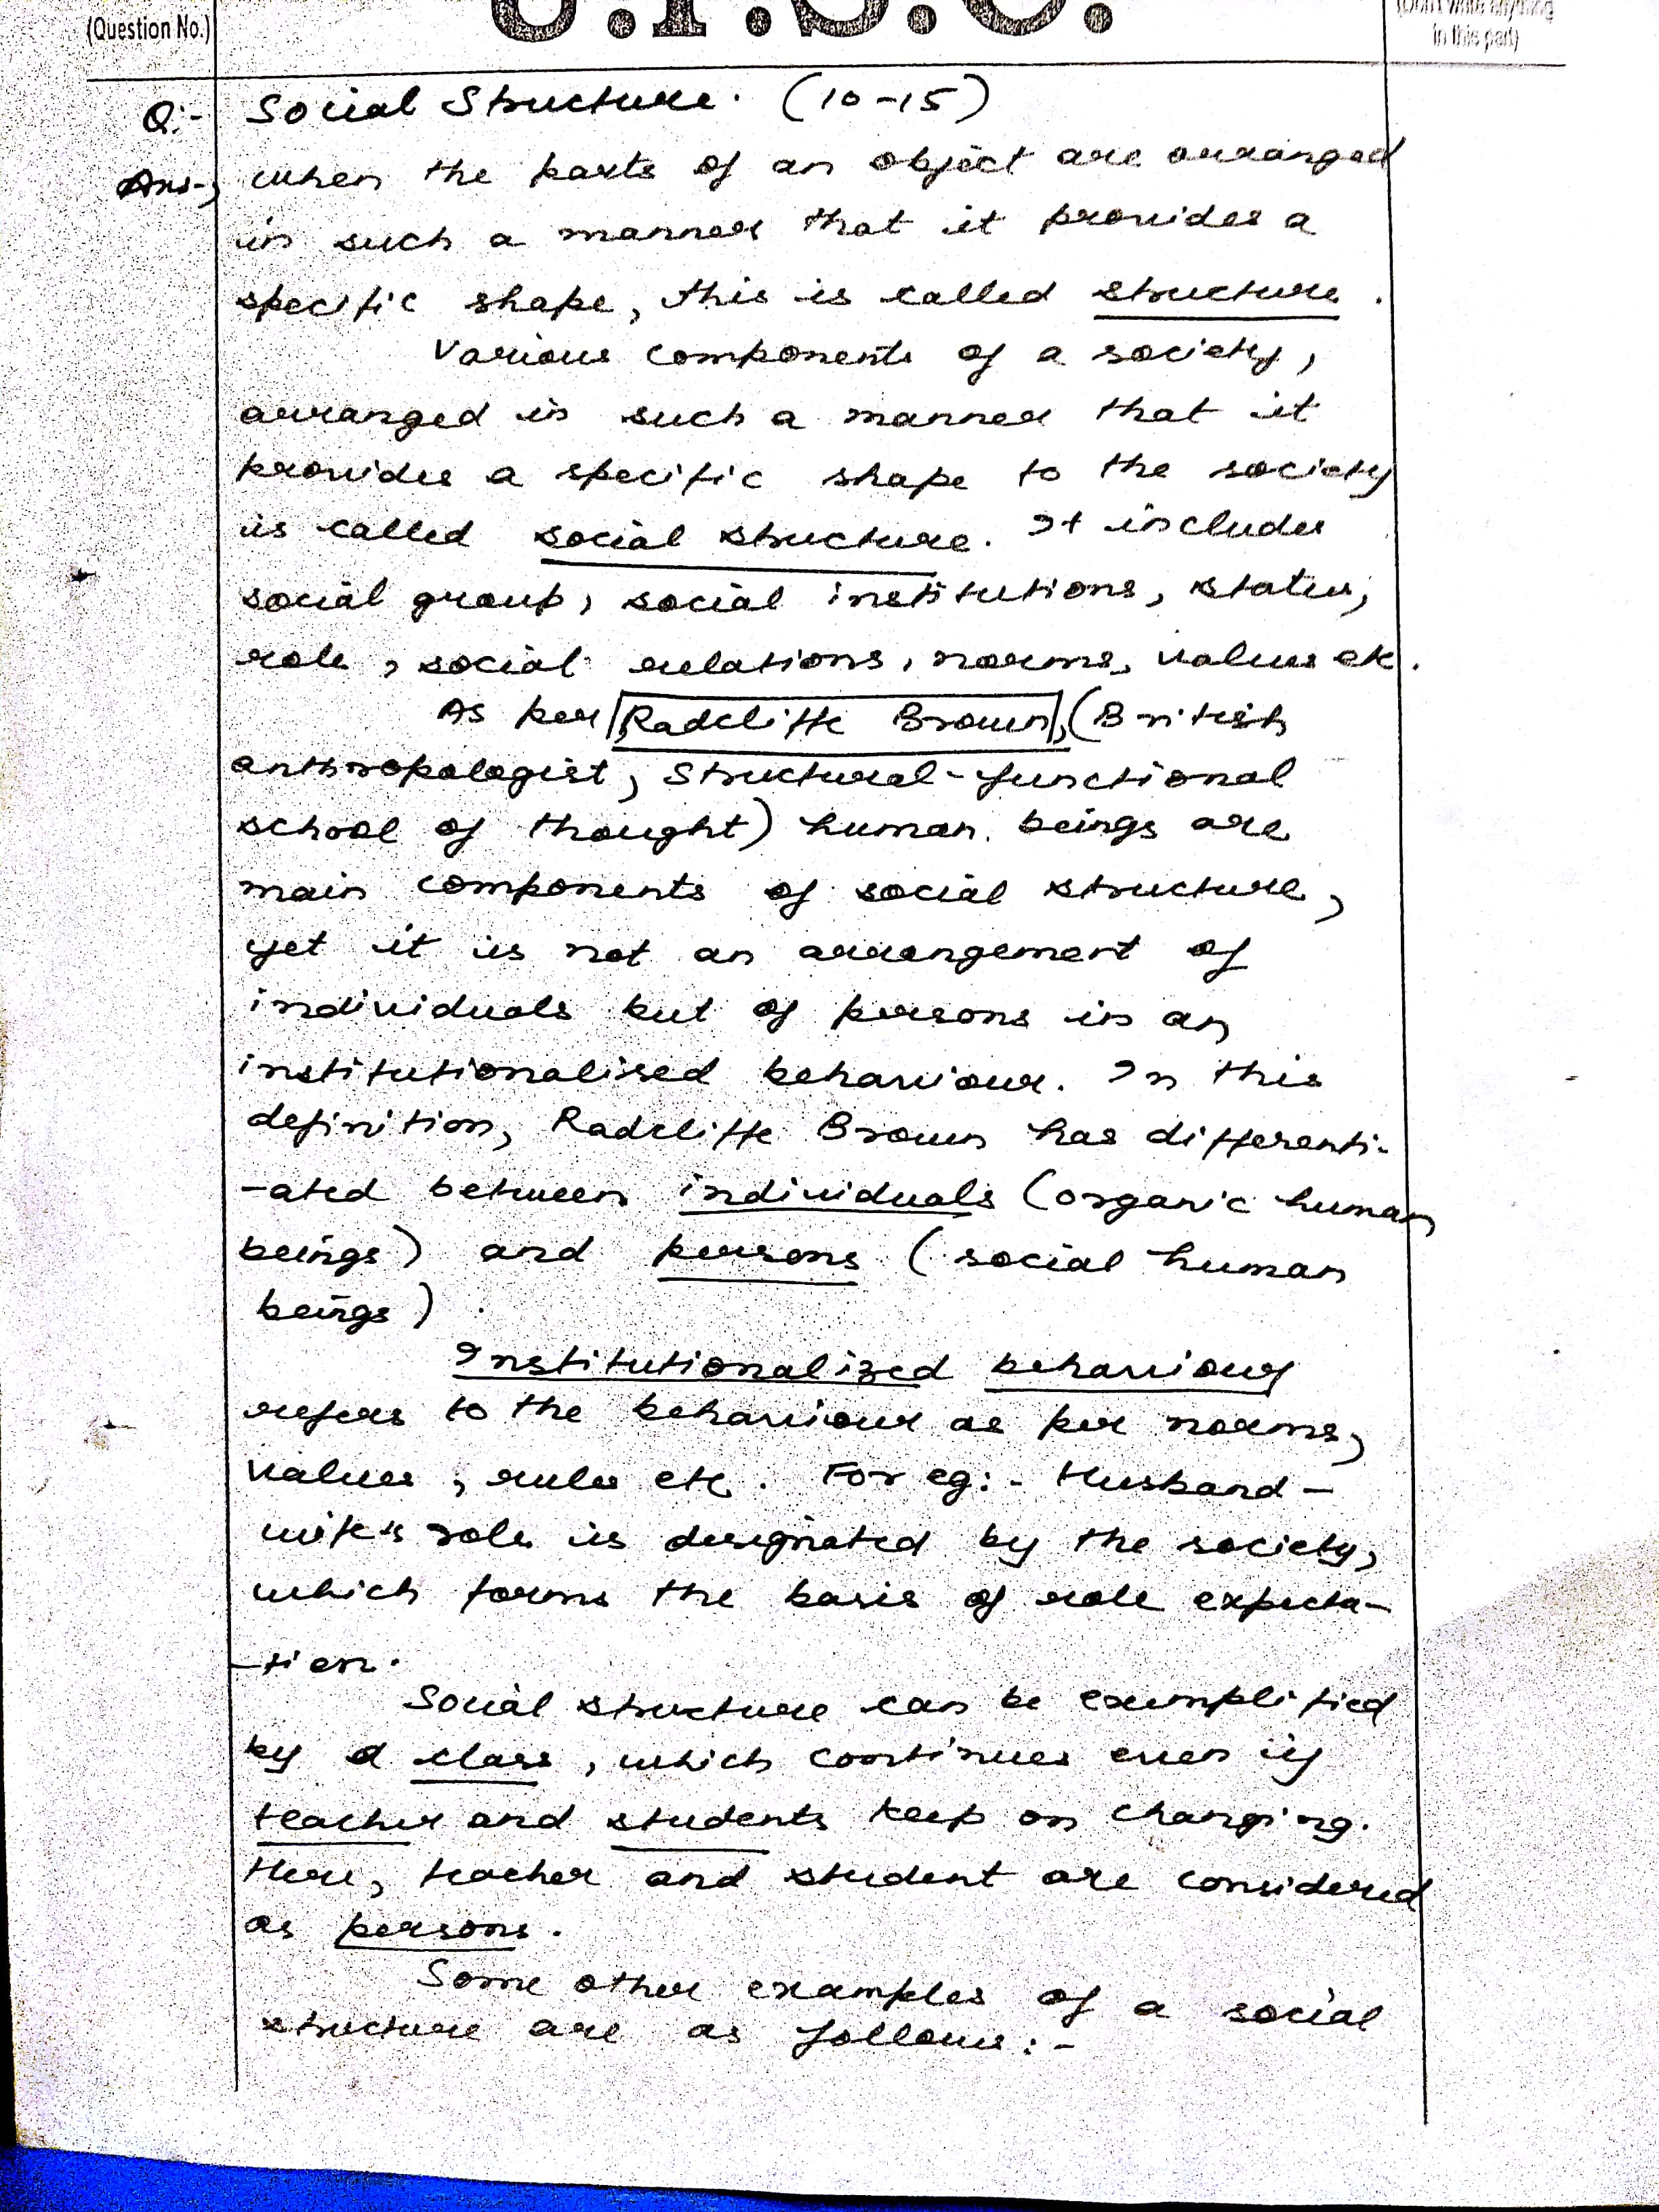 (Question No.)
U.P.S.C.
(Don't write anything
in this part)
Q:- Social Structure. (10-15)
Ans-, when the parts of an object are arranged
in such a manner that it provides a
specific shape, this is called structure.
Various components of a society,
arranged in such a manner that it
provides a specific shape to the society
is called social structure. It includes
social group, social institutions, status,
role, social relations, norms, values etc.
As per Radcliffe Brown, (British
anthropologist, Structural-functional
school of thought) human beings are
main components of social structure,
yet it is not an arrangement of
individuals but of persons in an
institutionalised behaviour. In this
definition, Radcliffe Brown has differenti-
-ated between individuals (organic human
beings) and persons (social human
beings).
Institutionalized behaviour
refers to the behaviour as per norms,
values, rules etc. For eg:- Husband-
wife's role is designated by the society,
which forms the basis of role expecta-
-tion.
Social structure can be exemplified
by a class, which continues even if
teacher and students keep on changing.
Here, teacher and student are considered
as persons.
Some other examples of a social
structure are as follows:-